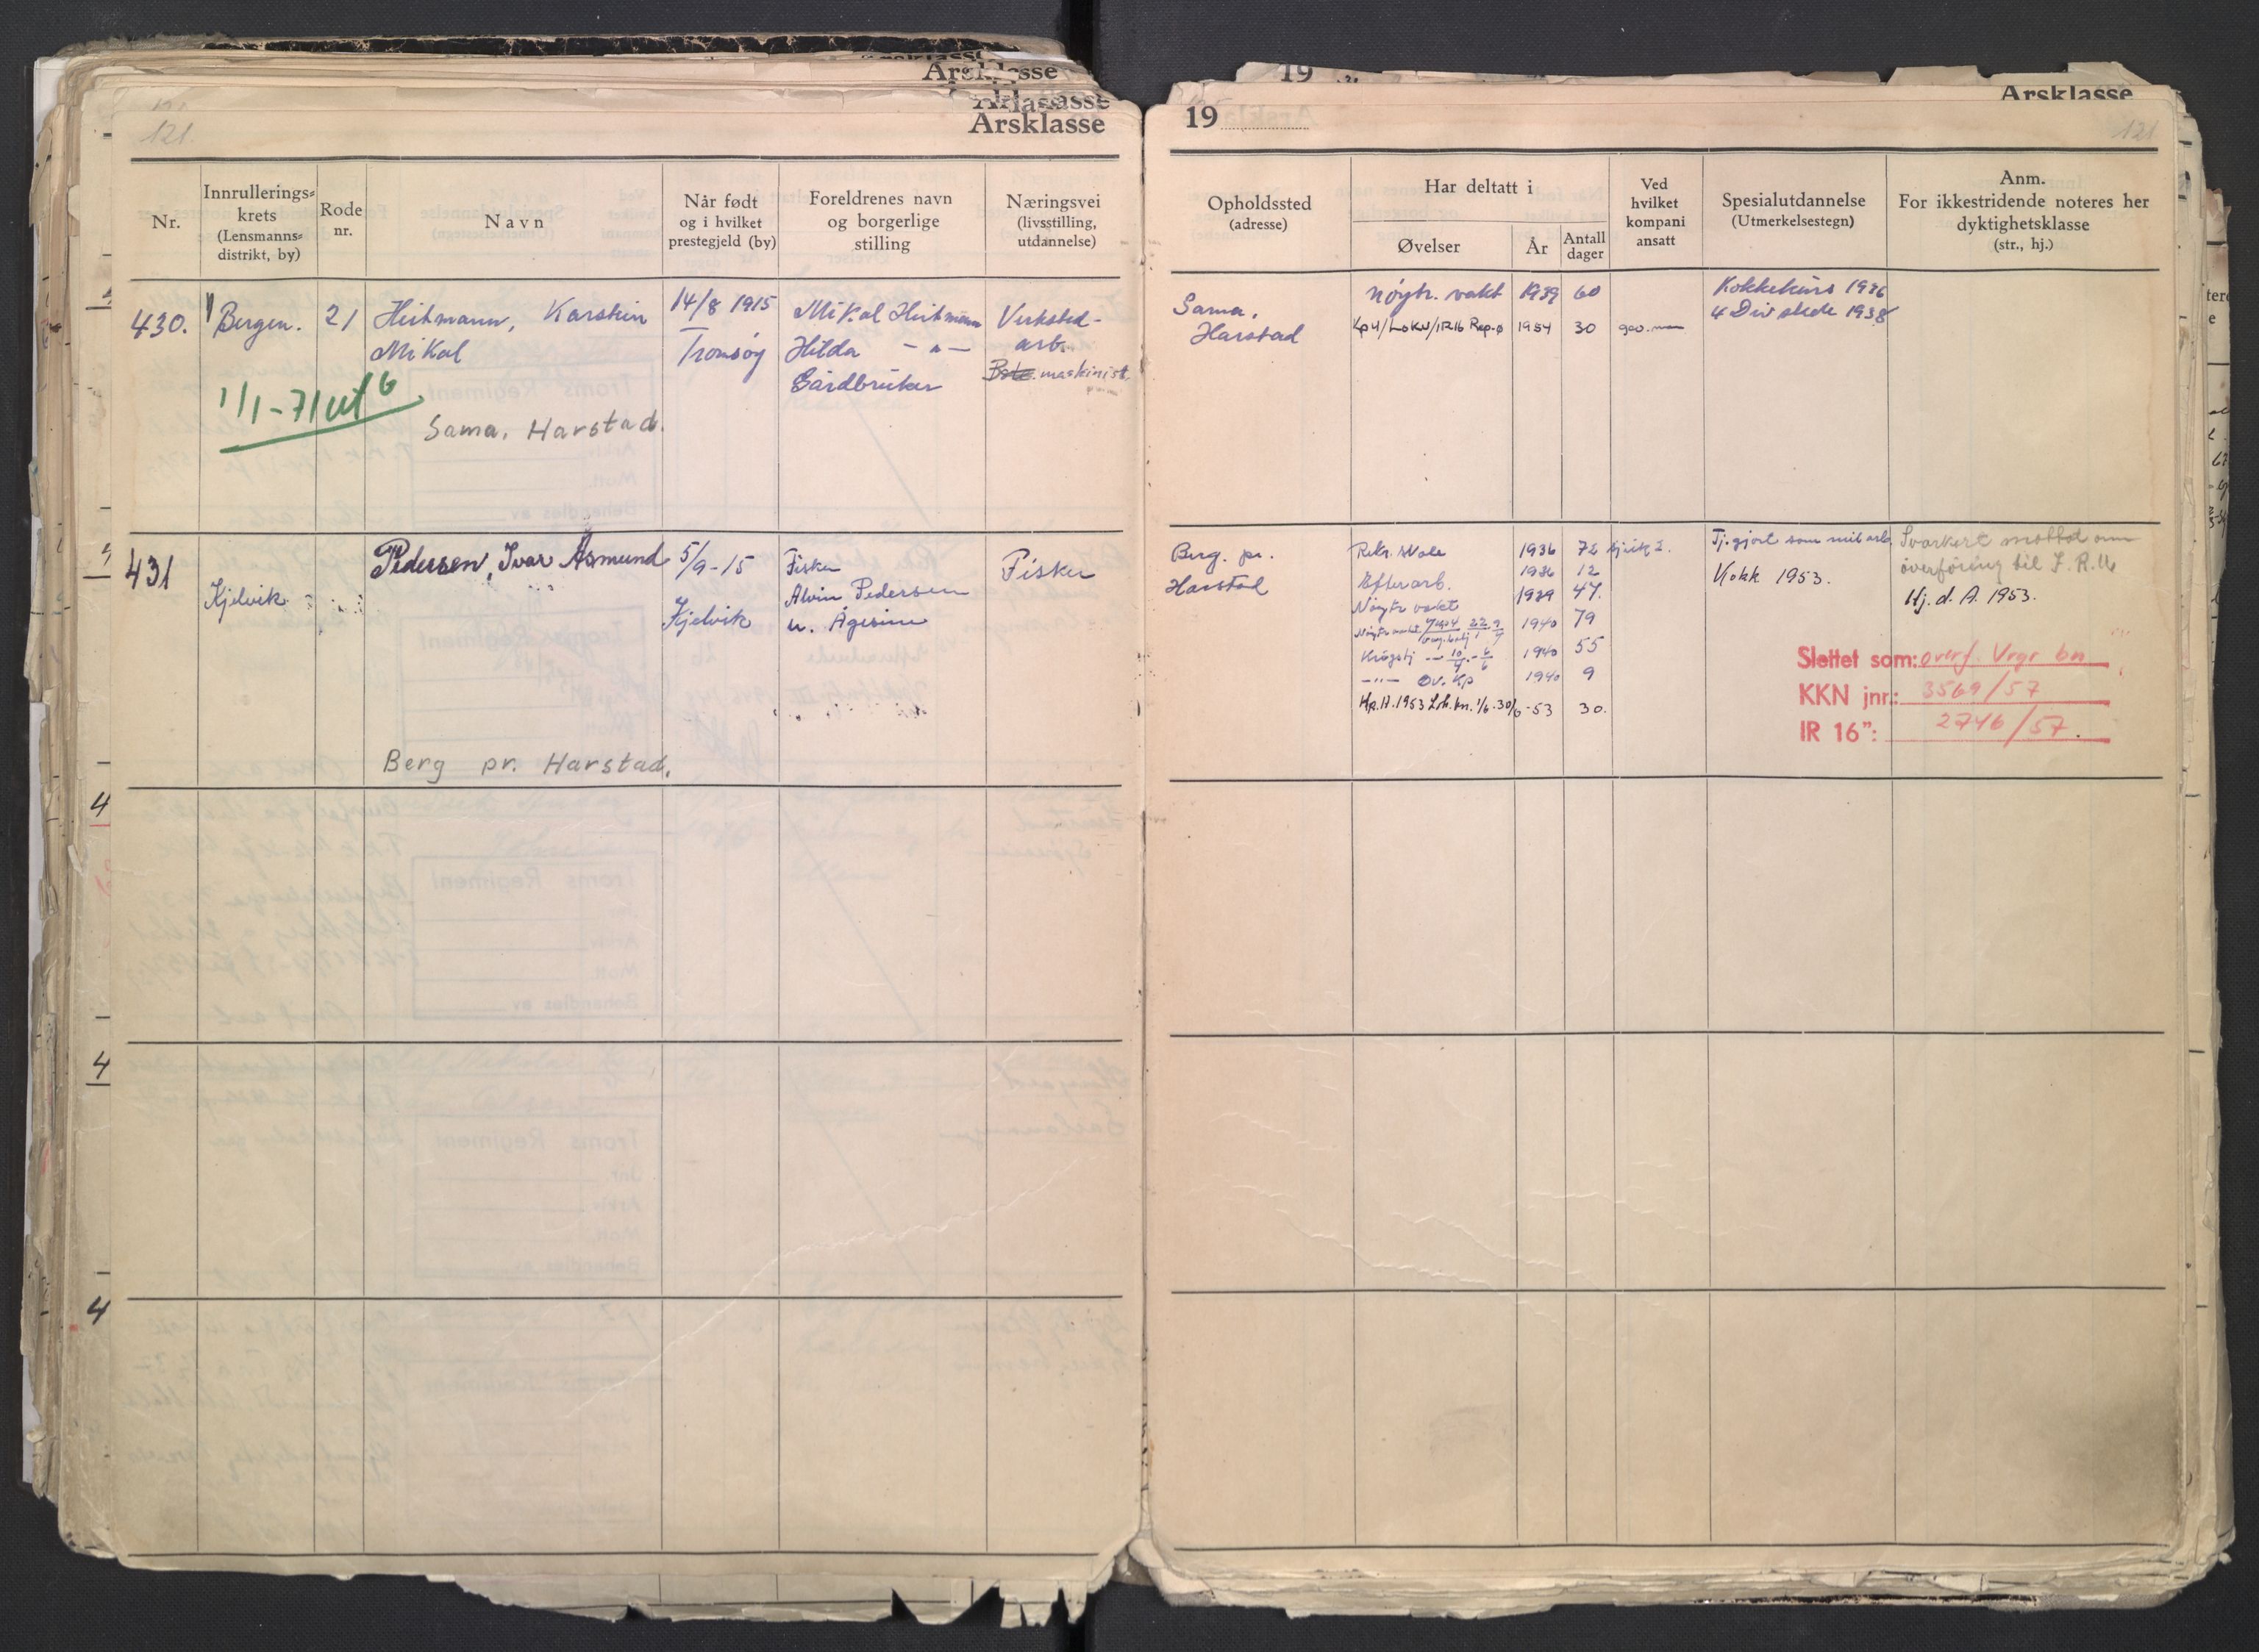 Årsklasse
121.
Nr.
Innrullerings=
krets
(Lensmanns=
distrikt, by)
Rode
nr.
Navn
Når født
og i hvilket
prestegjeld (by)
Foreldrenes navn
og borgerlige
stilling
Næringsvei
(livsstilling,
utdannelse)
430.
Bergen.
21
Heitmann, Karstein
Mikal
14/8 1915
Tromsøy
Mikal Heitmann
Hilda — " —
Gårdbruker
Verksted-
arb.
maskinist.
1/1-71 utg
Sama, Harstad.
431
Kjelvik
Pedersen, Ivar Åsmund
5/9-15
Kjelvik
Fisker
Alvin Pedersen
u. Ågesine
Fisker
Berg pr. Harstad.
4
4
4
19
Årsklasse
19
121
Opholdssted
(adresse)
Har deltatt i
Øvelser
År
Antall
dager
Ved
hvilket
kompani
ansatt
Spesialutdannelse
(Utmerkelsestegn)
Anm.
For ikkestridende noteres her
dyktighetsklasse
(str., hj.)
Sama,
Harstad
Nøytr. vakt 1939 60
Kp 4/LoKV/IR16 Rep.ø 1954 30
Kokkekurs 1936
4 Div stede 1938
Berg. pr.
Harstad
Rekr. skole 1936 72
Efterarb. 1936 12
Nøytr vakt 1939 47.
1940 79
Krigstj 10/4 - 6/6 1940 55
—"— Øv. Kp 1940 9
1953 1/6-30/6-53 30.
Tj.gjort som mil arb.
Kokk 1953.
Svarkort mottat om
överföring til I.R.16
Hj. d. A. 1953.
Slettet som: overf. Vrgr bn
KKN jnr.: 3569/57
IR 16": 2746/57.